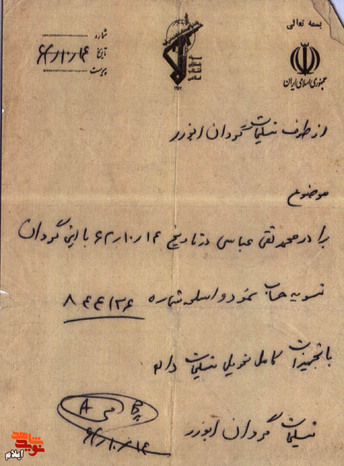 بسمه تعالی
جمهوری اسلامی ایران
شماره
تاریخ ۶۲/۱۰/۱۴
پیوست
از طرف تسلیحات گردان ابوذر
موضوع
برادر محمد تقی عباسی در تاریخ ۶۲/۱۰/۱۴ با این گردان
تسویه حساب نمود و اسلحه شماره
با تجهیزات کامل تحویل تسلیحات داد
تسلیحات گردان ابوذر
۶۲/۱۰/۱۴
نوید شاهد
ایلام